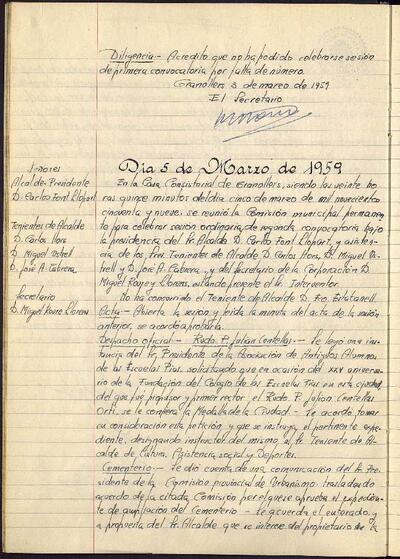 Diligencia.- Acredito que no ha podido celebrarse sesión
de primera convocatoria por falta de número.
Granollers 3 de marzo de 1959
El Secretario
Señores
Alcalde-Presidente
D. Carlos Font Llopart
Tenientes de Alcalde
D. Carlos Hors
D. Miguel Vetrell
D. José A. Cabrera
Secretario
D. Miguel Roure Llorens
Día 5 de Marzo de 1959
En la Casa Consistorial de Granollers, siendo las veinte ho
ras quince minutos del día cinco de marzo de mil novecientos
cincuenta y nueve, se reunió la Comisión municipal permanen
te para celebrar sesión ordinaria de segunda convocatoria bajo
la presidencia del Sr. Alcalde D. Carlos Font Llopart, y asisten-
cia de los Sres. Tenientes de Alcalde D. Carlos Hors, D. Miguel Vet-
rell y D. José A. Cabrera, y del Secretario de la Corporación D.
Miguel Roure y Llorens, estando presente el Sr. Interventor.
No ha concurrido el Teniente de Alcalde D. Fco.
Acta.- Abierta la sesión y leída la minuta del acta de la sesión
anterior, se acordó aprobarla.
Despacho oficial.- Rvdo. P. Julián Centelles.- Se leyó una ins-
tancia del Sr. Presidente de la Asociación de Antiguos Alumnos
de las Escuelas Pías, solicitando que en ocasión del XXV aniversa-
rio de la Fundación del Colegio de las Escuelas Pías en esta ciudad,
del que fué propulsor y primer rector el Rvdo. P. Julián Centelles
Orti, se le confiera la Medalla de la Ciudad.- Se acordó tomar
en consideración esta petición, y que se instruya el pertinente expe-
diente, designando instructor del mismo, al Sr. Teniente de Al-
calde de Cultura, Asistencia social y Deportes.
Cementerio.- Se dió cuenta de una comunicación del Sr. Pre-
sidente de la Comisión provincial de Urbanismo trasladando
acuerdo de la citada Comisión por el que se aprueba el expedien-
te de ampliación del Cementerio.- Se acuerda el enterado, y
a propuesta del Sr. Alcalde que se interese del propietario de la